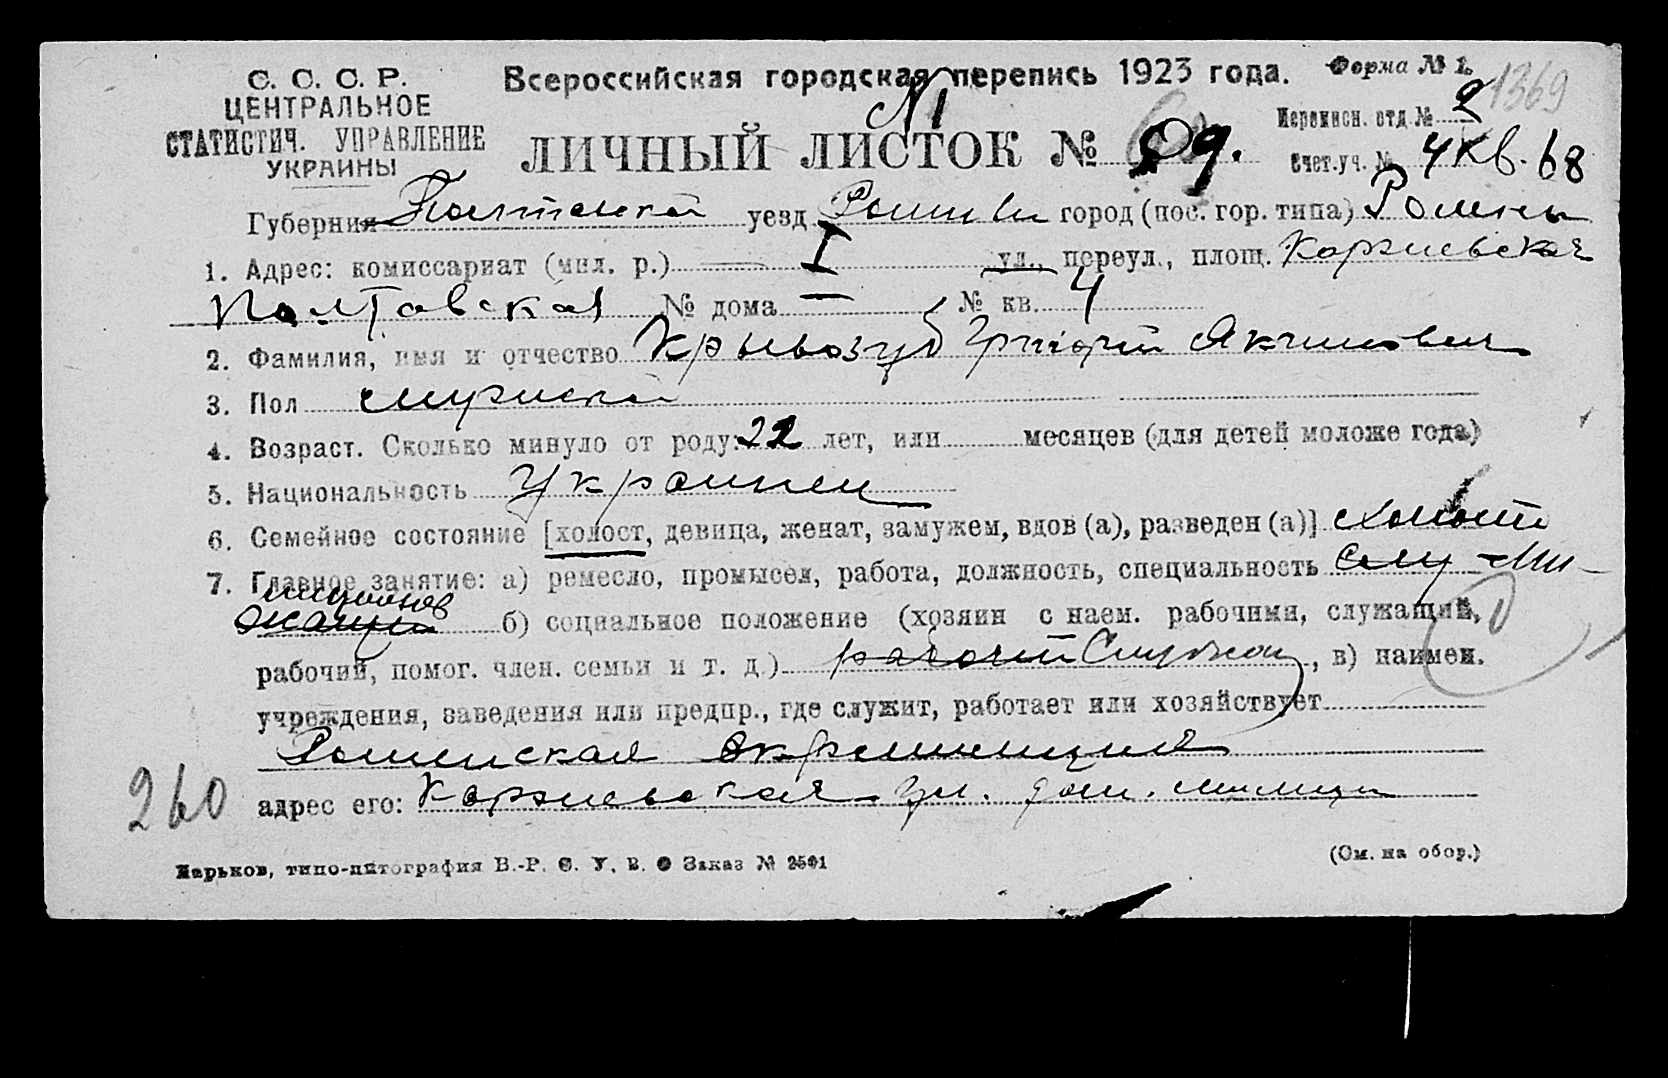 С. С. С. Р.
ЦЕНТРАЛЬНОЕ
СТАТИСТИЧ. УПРАВЛЕНИЕ
УКРАИНЫ
Всероссийская городская перепись 1923 года.
Форма № 1.
1369
№1
ЛИЧНЫЙ ЛИСТОК № 59.
Переписн. отд. № 2
Счет.уч. № 4 кв. 68
Губерния Полтавской уезд Роменский город (пос. гор. типа) Ромны
1. Адрес: комиссариат (мил. р.) I ул., переул., площ. Коржевская
Полтавская № дома — № кв. 4
2. Фамилия, имя и отчество Крывозуб Григорий Якимович
3. Пол мужской
4. Возраст. Сколько минуло от роду: 22 лет, или месяцев (для детей моложе года)
5. Национальность Украинец
6. Семейное состояние [холост, девица, женат, замужем, вдов (а), разведен (а)] холост
7. Главное занятие: а) ремесло, промысел, работа, должность, специальность Слу Ми-
лиционер
жащий б) социальное положение (хозяин с наем. рабочими, служащий,
рабочий, помог. член. семьи и т. д.) рабочий Служащ, в) наимен.
учреждения, заведения или предпр., где служит, работает или хозяйствует
Роменская Окрмилиция
260
адрес его: Коржевская ул. дом. милиции
Харьков, типо-литография В.-Р. Заказ № 2591
(См. на обор.)